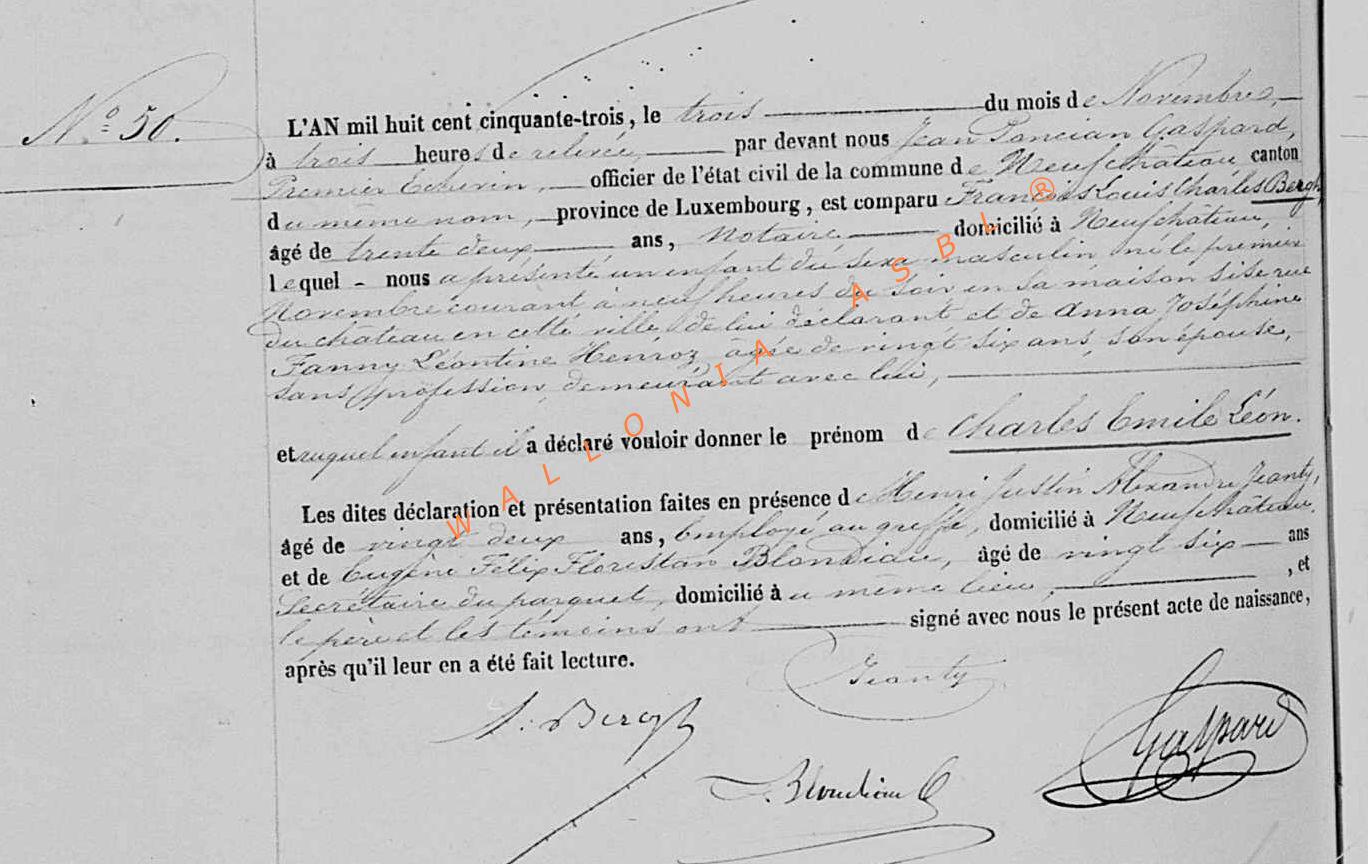 N° 50.
L'AN mil huit cent cinquante-trois, le trois du mois de Novembre,
à trois heures de relevée, par devant nous Jean Poncian Gaspard,
Premier Echevin, officier de l'état civil de la commune de Neufchâteau canton
du même nom, province de Luxembourg, est comparu François Louis Charles Bergh,
âgé de trente deux ans, Notaire domicilié à Neufchâteau,
lequel - nous a présenté un enfant du sexe masculin né le premier
Novembre courant à neuf heures du soir en sa maison sise rue
du château en cette ville, de lui déclarant et de Anna Joséphine
Fanny Léontine Henroz âgée de vingt six ans, son épouse,
sans profession, demeurant avec lui,
et auquel enfant il a déclaré vouloir donner le prénom de Charles Emile Léon.
Les dites déclaration et présentation faites en présence de Henri Justin Alexandre Jeanty,
âgé de vingt deux ans, Employé au greffe, domicilié à Neufchâteau
et de Eugène Félix Florestan Blondiau, âgé de vingt six ans
Secrétaire du parquet, domicilié au même lieu, , et
le père et les témoins ont signé avec nous le présent acte de naissance,
après qu'il leur en a été fait lecture.
Jeanty
Bergh
Gaspard
Blondiau
WALLONIA ASBL ®